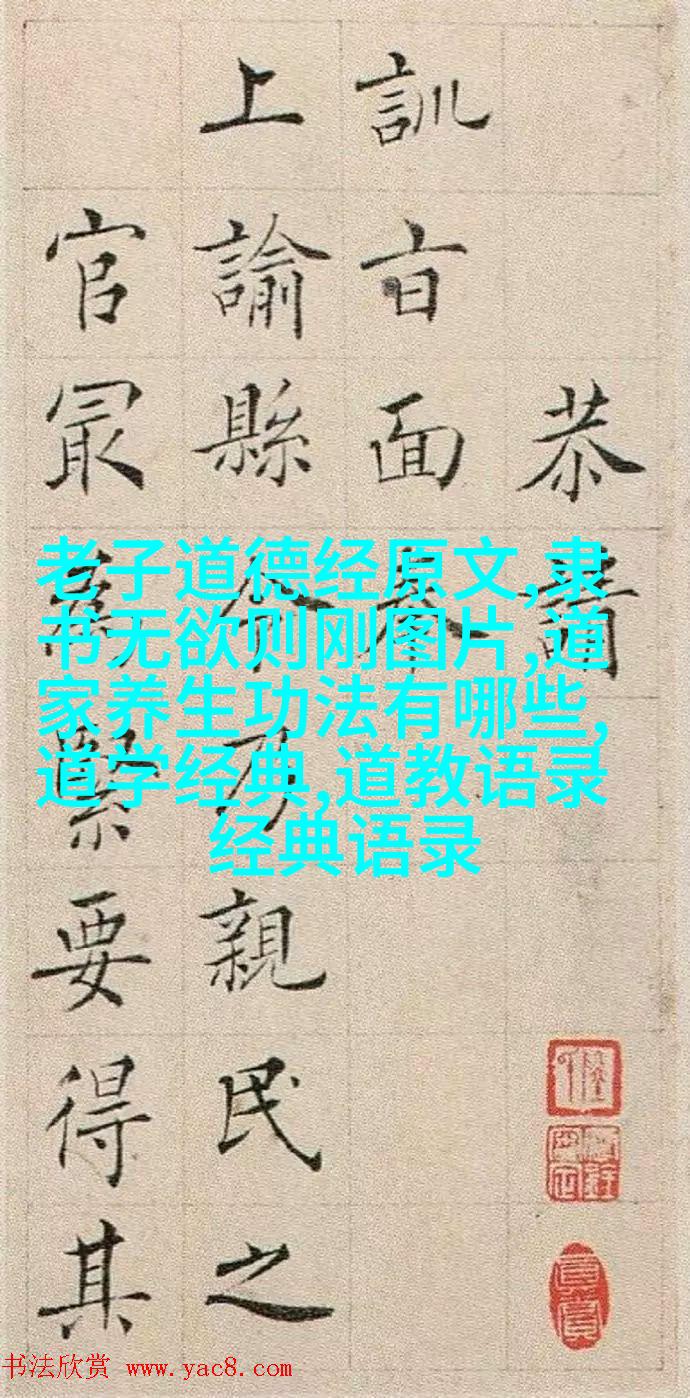 恭請
訓旨面奉
上諭縣令乃親民之
官最為緊要得其
老子道德经原文,隶
书无欲则刚图片,道
家养生功法有哪些,
道学经典,道教语录
经典语录
书法欣赏 www.yac8.com